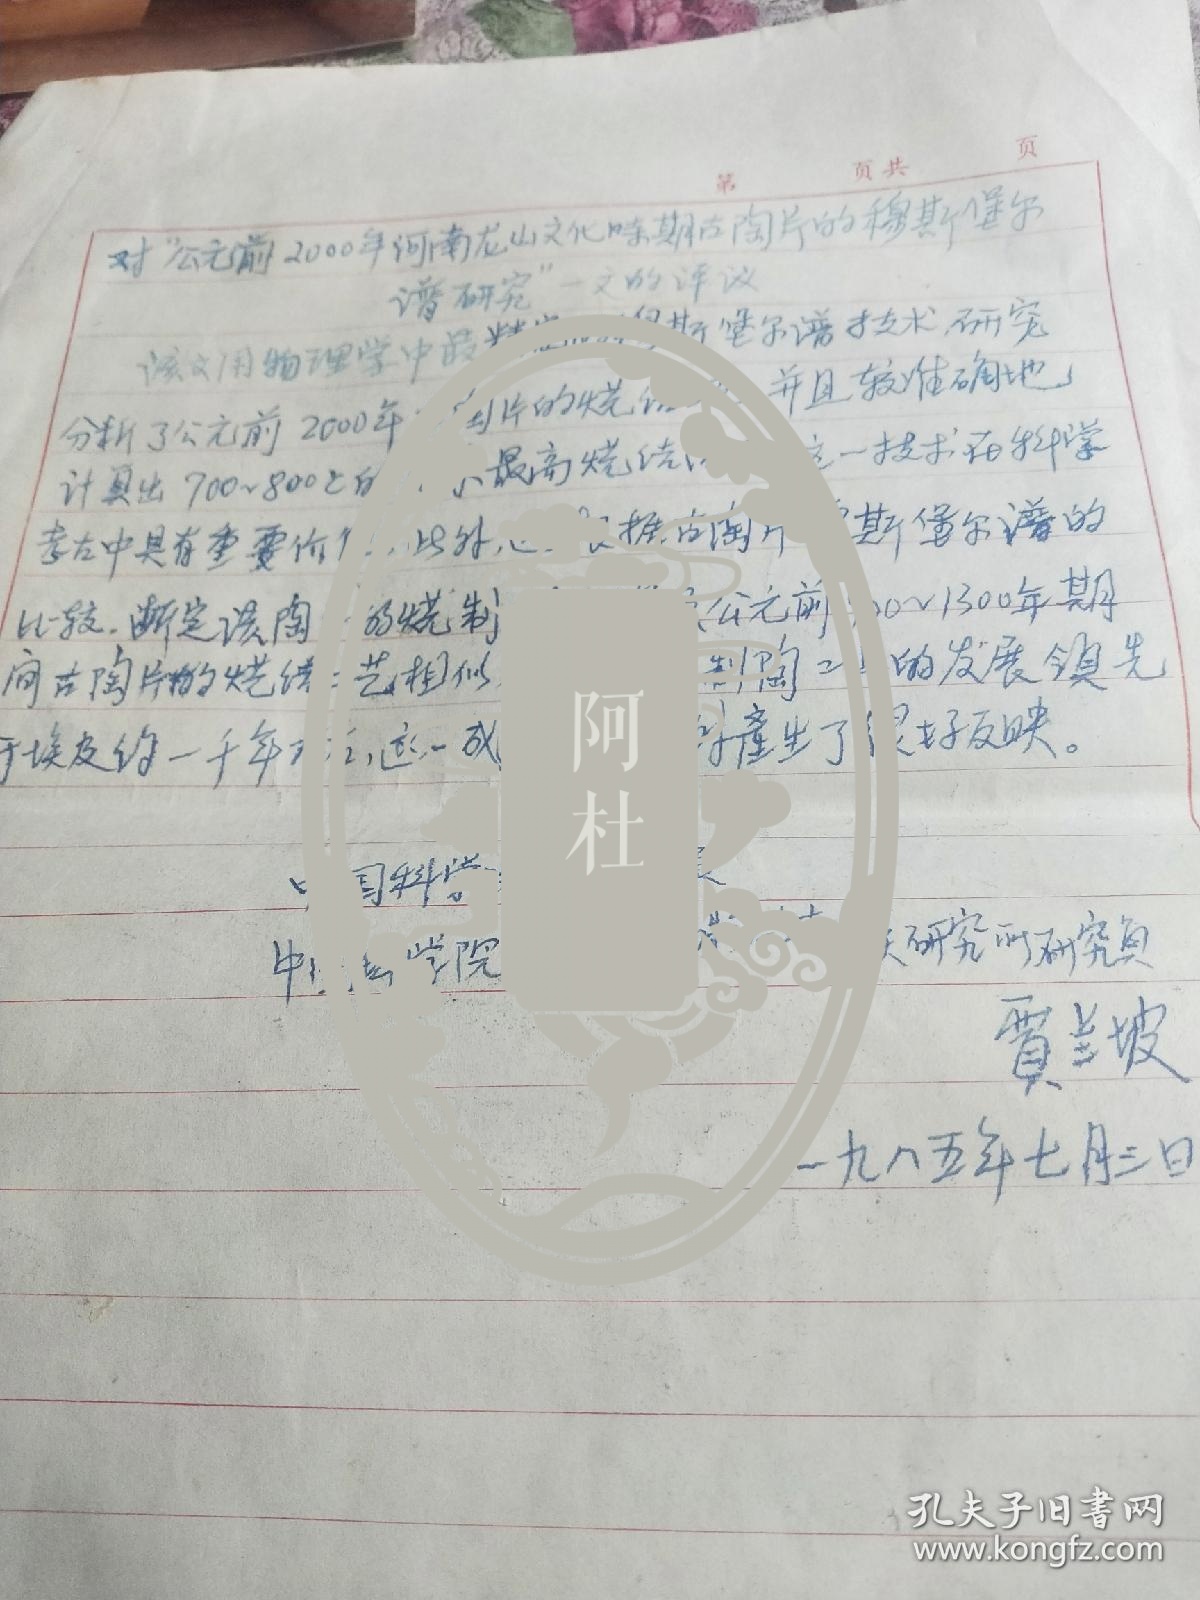 第 页共 页
对"公元前2000年河南龙山文化晚期古陶片的穆斯堡尔
谱研究"一文的评议
该文用物理学中最精 斯堡尔谱技术研究
分析了公元前2000年 陶片的烧结 并且较准确地
计算出700~800℃的 最高烧结 这一技术在科学
考古中具有重要价值 此外, 根据古陶片 斯堡尔谱的
比较.断定该陶 的烧制 公元前 00~1300年期
间古陶片的烧结工艺相似 制陶工 的发展领先
于埃及约一千年 这一成 產生了很好反映。
中国科学
中 学院 研究所研究员
賈兰坡
一九八五年七月三日
阿
杜
孔夫子旧书网
www.kongfz.com